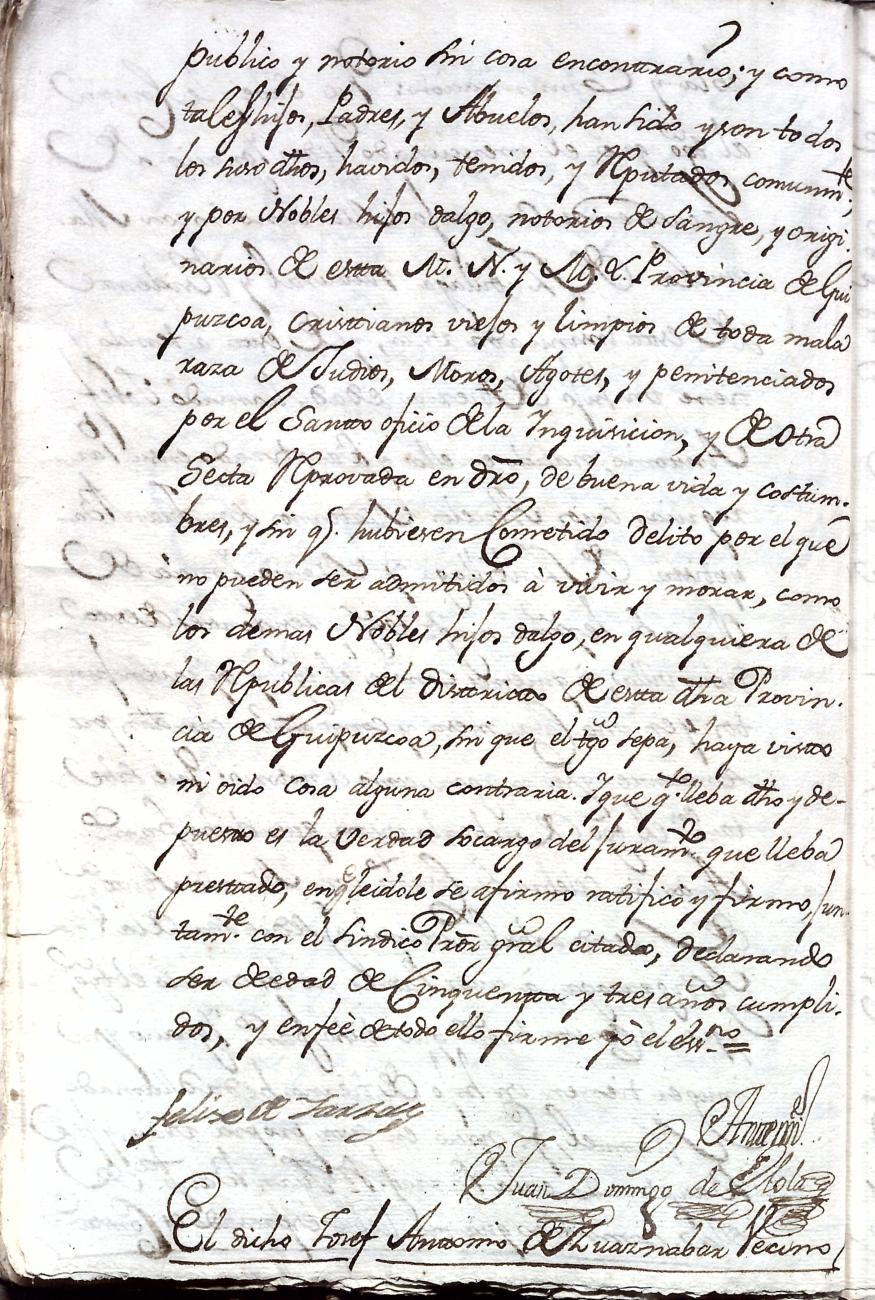 publico y notorio sin cosa encontrario; y como
tales hijos, Padres, y Abuelos, han sido y son todos
los susodhos, havidos, tenidos, y Rputados comunmte,
y por Nobles hijos dalgo, notorios de sangre, y origi-
narios de estta M. N. y M. L. Provincia de Gui
puzcoa, Cristtianos viejos y limpios de toda mala
raza de Judios, Moros, Agotes, y penitenciados
por el Santto oficio de la Inquisicion, y de Otra
Secta Rprovada en dro, de buena vida y costum-
bres, y sin q. hubiesen Cometido delito por el que
no pueden ser admitidos à vivir y morar, como
los demas Nobles hijos dalgo, en qualquiera de
las Rpublicas del Districtto de estta dha Provin-
cia de Guipuzcoa, sin que el tgo sepa, haya vistto
ni oido cosa alguna contraria. Y que to q. lleba dho y de-
puestto es la Verdad socargo del juramto que lleba
presttado, en q leidole se afirmo ratificò y firmo, jun-
tamte. con el Sindico Pror gral citado, declarando
ser de edad de Cinquentta y tres años cumpli-
dos, y enfeè de todo ello firme yò el essno =
Felix de
Antemi
Juan Domingo de Elola
El dicho Josef Anttonio de Zuaznabar Vecino